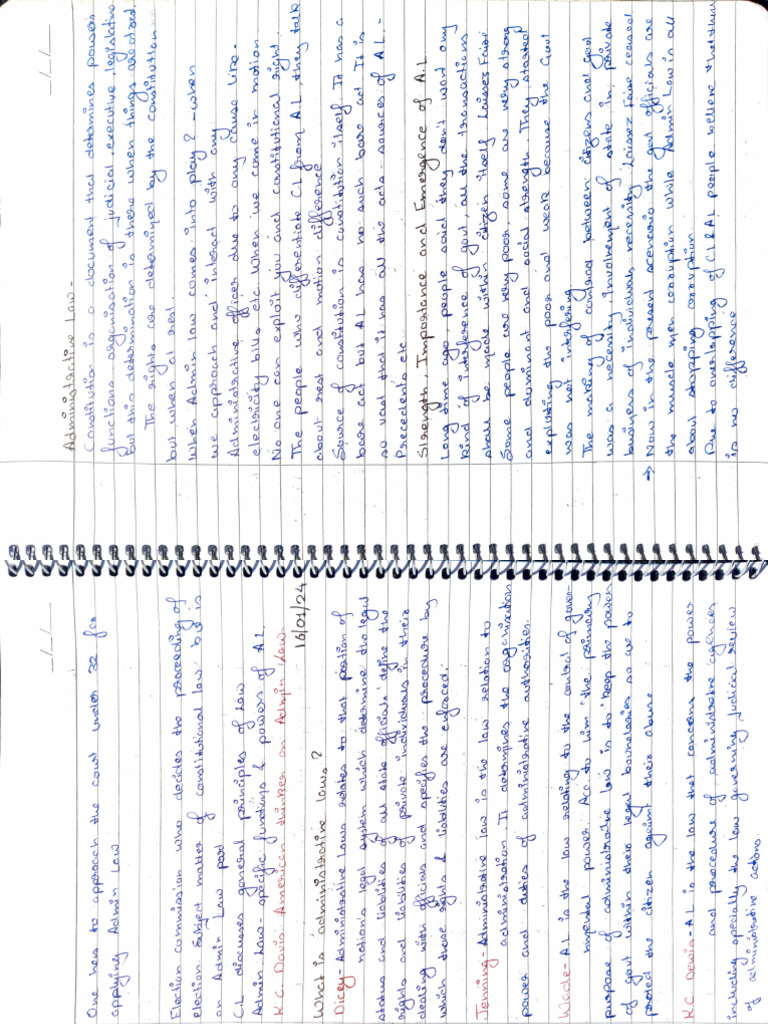 Administrative Law -
Constitution is a document that determines powers
functions, organisation of judicial, executive, legislative
but this determination is there when things are at rest.
The rights are determined by the constitution
but when at rest.
When Admin law comes into play? - when
we approach and interact with any
Administrative officer due to any cause like -
electricity bills etc. When we come in motion
No one can exploit you and constitutional right
The people who differentiate CL from AL, they talk
about rest and motion difference
Source of constitution is constitution itself It has a
base act but AL has no such base act It is
so vast that it has all the acts - sources of A.L. -
Precedents etc
Strength, Importance and Emergence of A.L
Long time ago, people said they don't want any
kind of interference of govt, all the transactions
shall be made within citizen itself Laissez Faire
Some people are very poor, some are very strong
and dominant and social strength. They started
exploiting the poor and weak because the Govt
was not interfering
The making of contract between citizens and govt
was a necessity involvement of state in private
business of individuals necessity Laissez Faire ceased
→ Now in the present scenario the govt officials are
the muscle men corruption while Admin Law is all
about stopping corruption.
Due to overlapping of CL & AL people believe that there
is no difference
One has to approach the court under 32 for
applying Admin Law
Election commission who decides the proceeding of
election Subject matter of constitutional law but is
an Admin Law part
CL discusses general principles of Law
Admin Law - specific functions & powers of AL.
K.C. Davis American thinker on Admin Law.
16/01/24
What is administrative laws?
Dicey - Administrative Laws relates to that portion of
nation's legal system which determine the legal
status and liabilities of all state officials' define the
rights and liabilities of private individuals in their
dealing with officials and specifies the procedure by
which those rights & liabilities are enforced.
Jenning - Administrative law is the law relation to
administration It determines the organization
power and duties of administrative authorities.
Wade - AL is the law relating to the control of gover-
nmental power. Acc to him "the primary
purpose of administrative law is to "keep the power
of govt within their legal boundaries so as to
protect the citizen against their abuse.
K.C. Davis - AL is the law that concerns the power
and procedure of administrative agencies
including specially the law governing judicial review
of administrative actions.